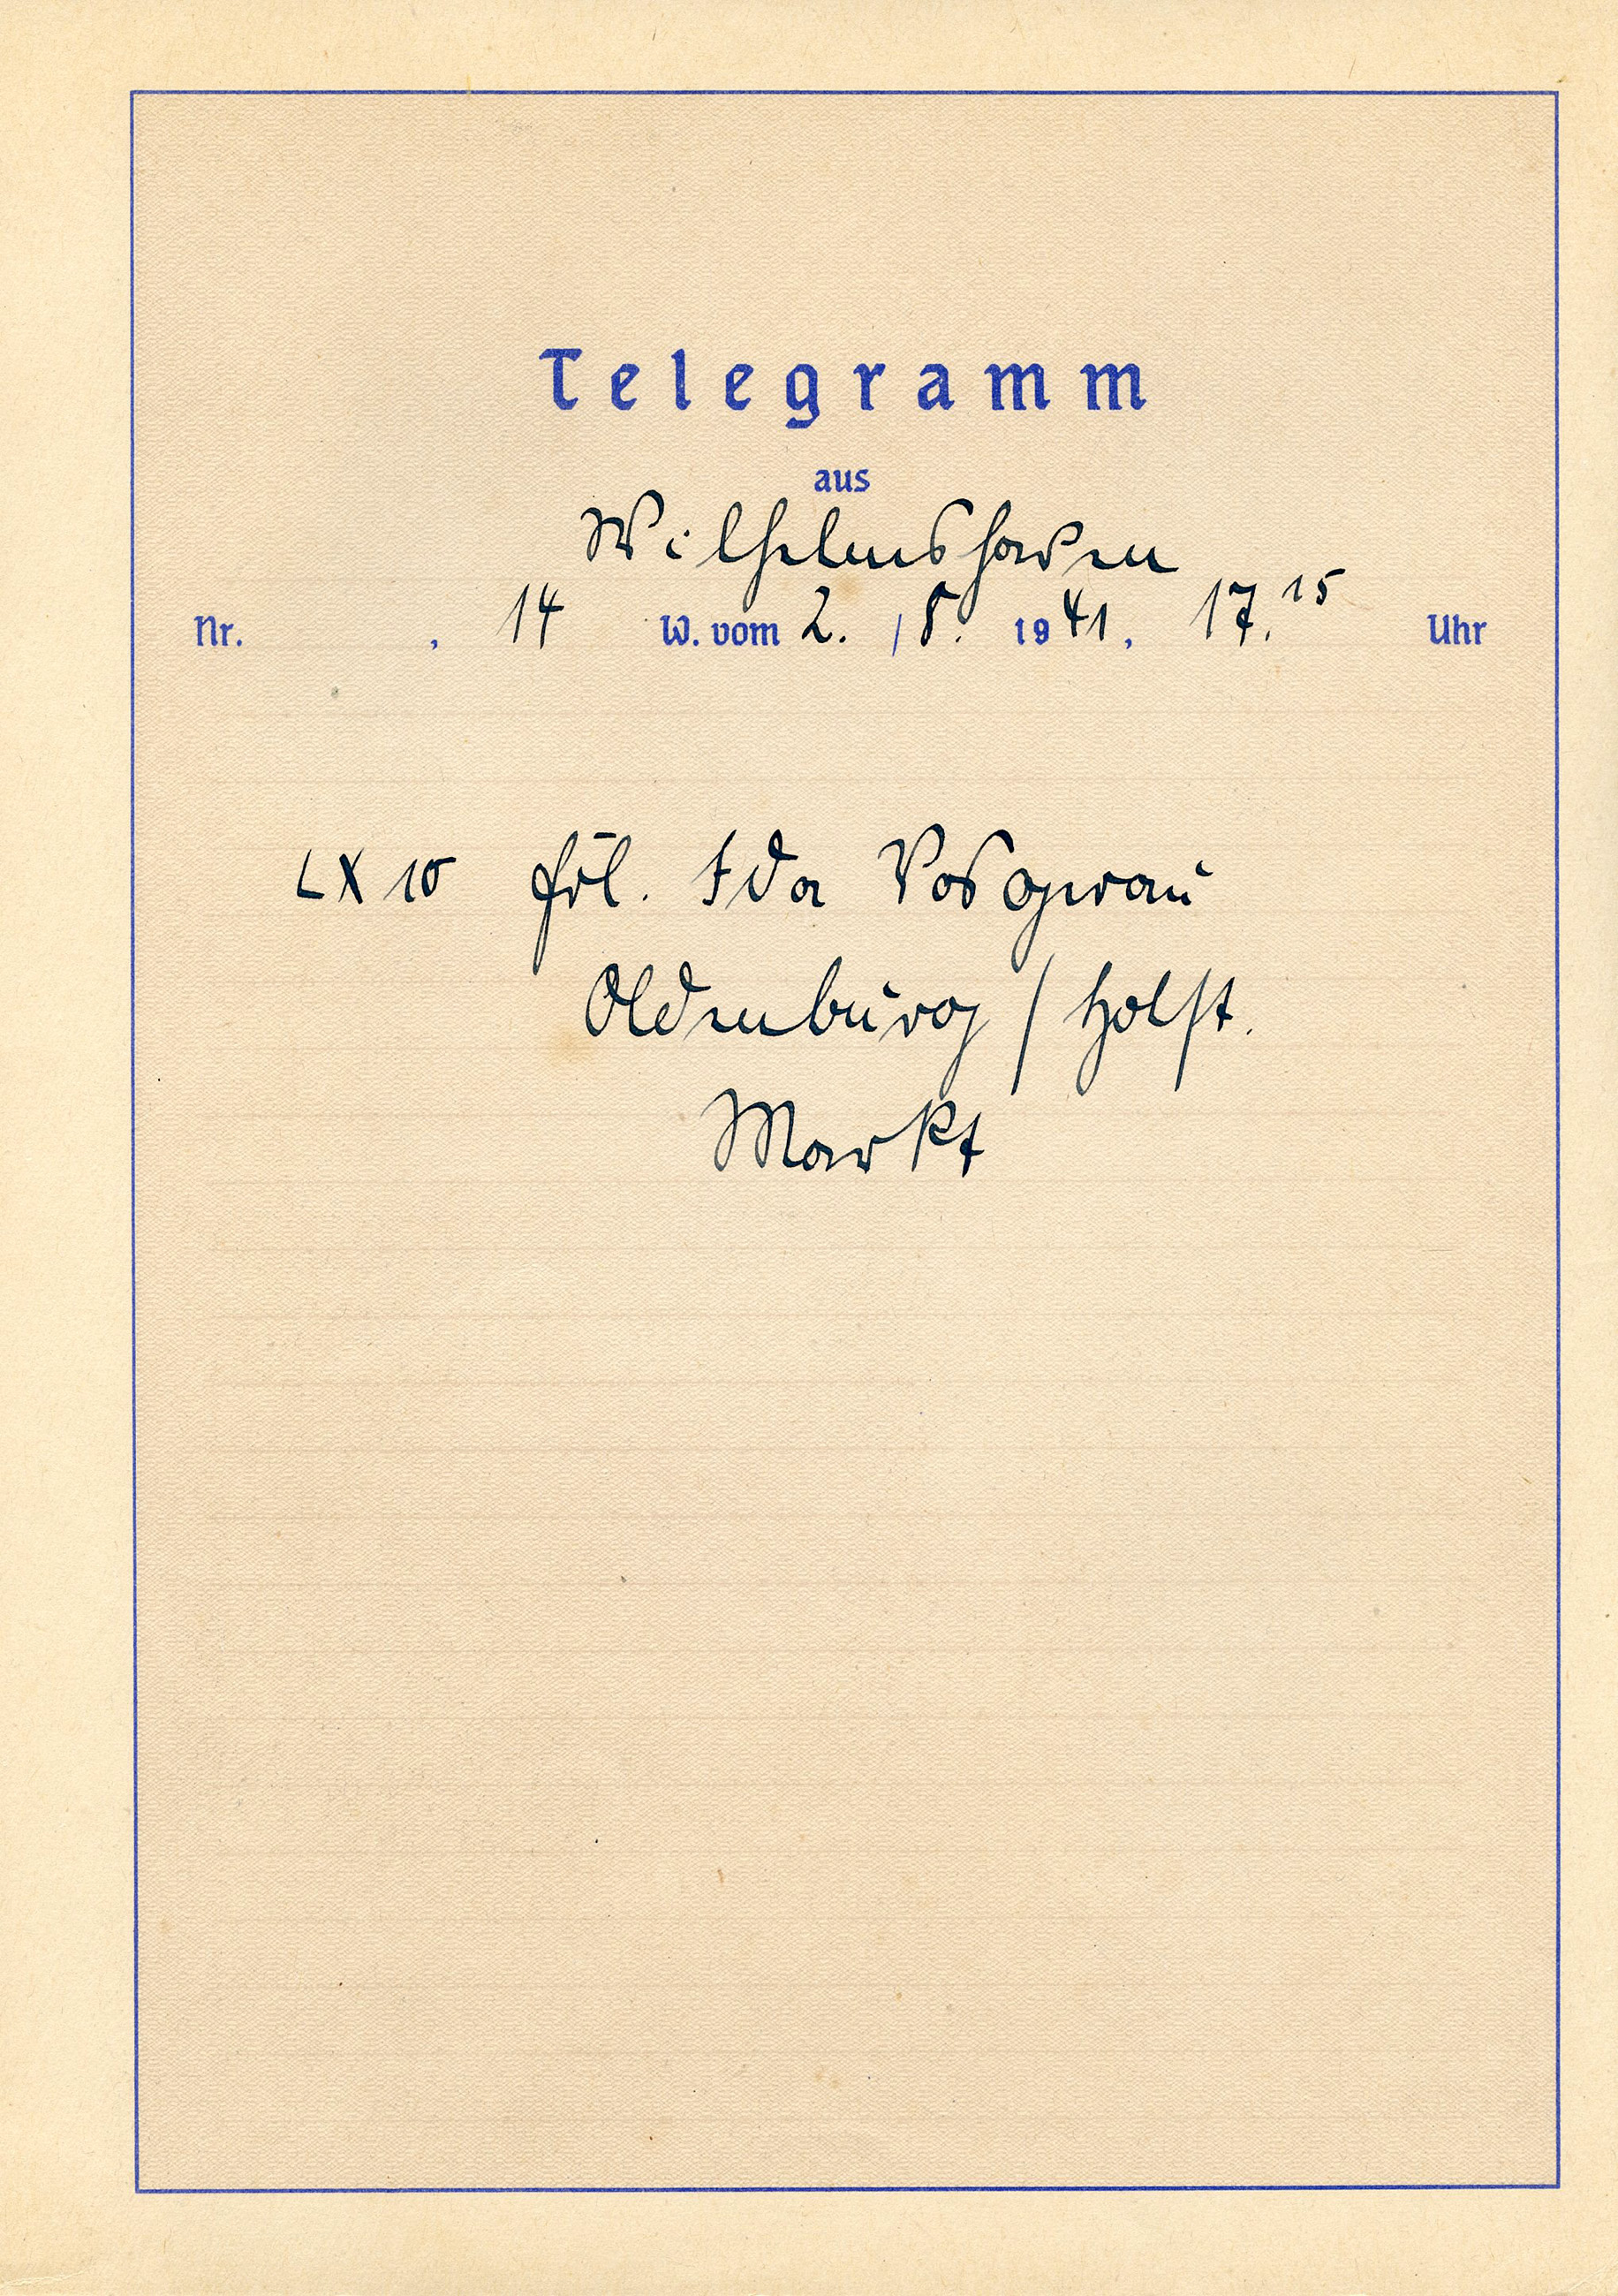 Telegramm
aus
Wilhelmshaven
Nr. , 14 W. vom 2. /8. 1941, 17.15 Uhr
LX 10 Frl. Ida Vosgrau
Oldenburg / Holst.
Markt